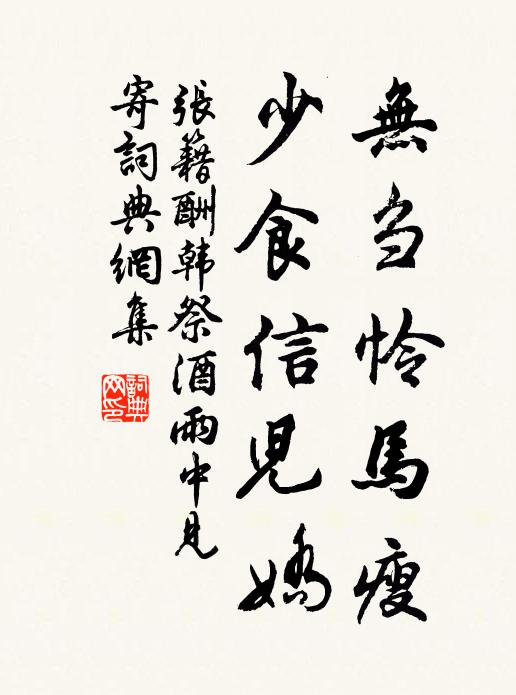 無刍怜馬瘦
少食信児嬌
張籍酬韩祭酒雨中見
寄詞典網集
詞典
网印